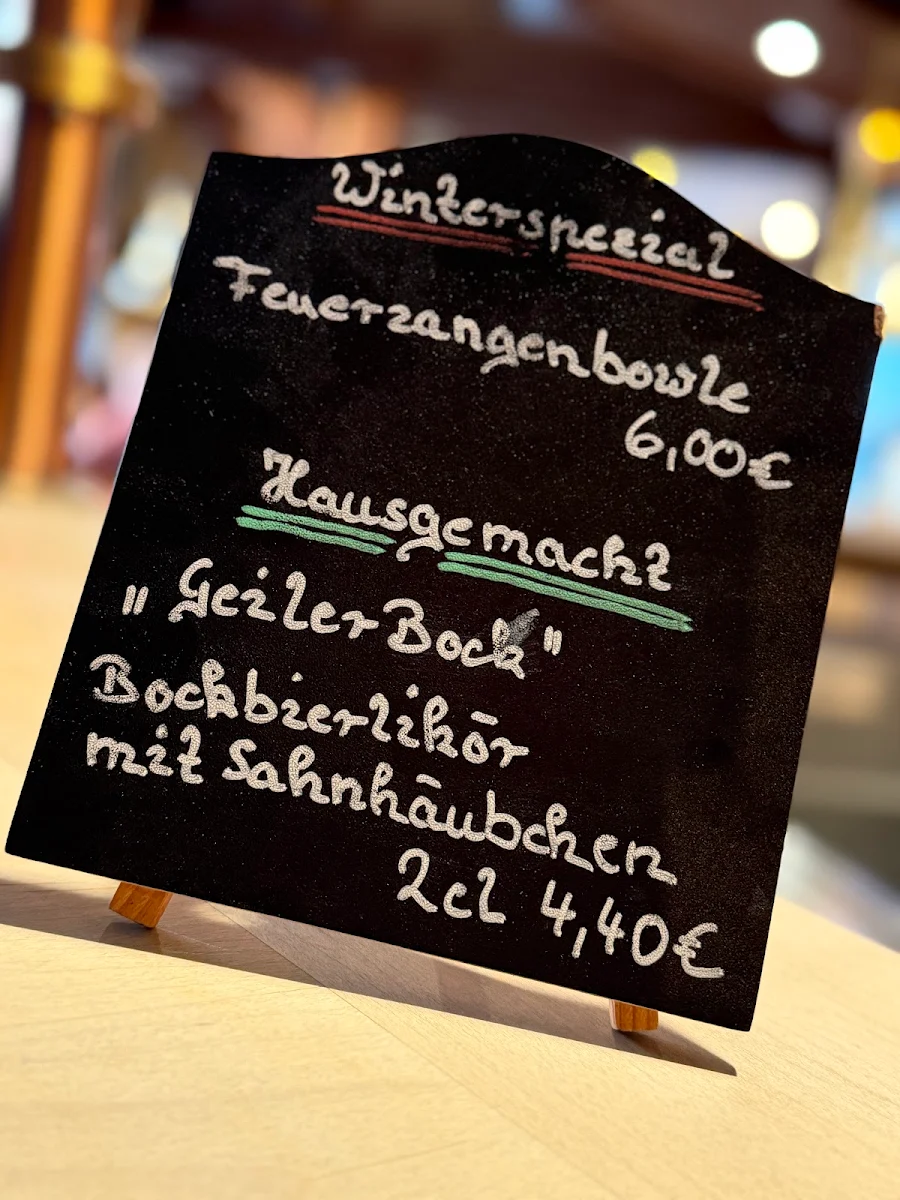 Winterspezial
Feuerzangenbowle
6,00€
Hausgemacht
"Geiler Bock"
Bockbierlikör
mit Sahnhäubchen
2cl 4,40€